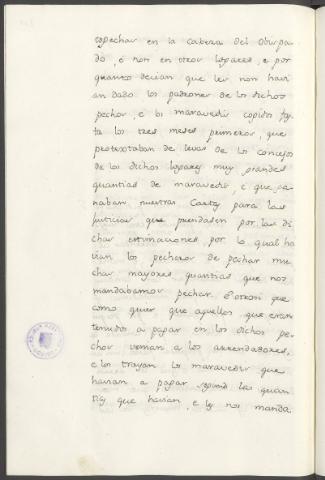 espechar en la Cabeza del Obispa
do, é non en otros logares, e por
quanto decian que les non havi
an dado los padrones de los dichos
pechos, e los maravedis copidos fas
ta los tres meses primeros, que
protestaban de levar de los concejos
de los dichos logares muy grandes
quantias de maravedis, e que ga
naban nuestras Cartas para las
justicias que prendasen por las di
chas estimaciones, por lo qual ha
vian los pecheros de pechar mu
chas mayores quantias que nos
mandabamos pechar. E otrosi que
como quier que aquellos que eran
tenudos a pagar en los dichos pe
chos venian a los arrendadores,
e los trayan los maravedis que
havian a pagar segund las quan
tias que havian, e les nos manda